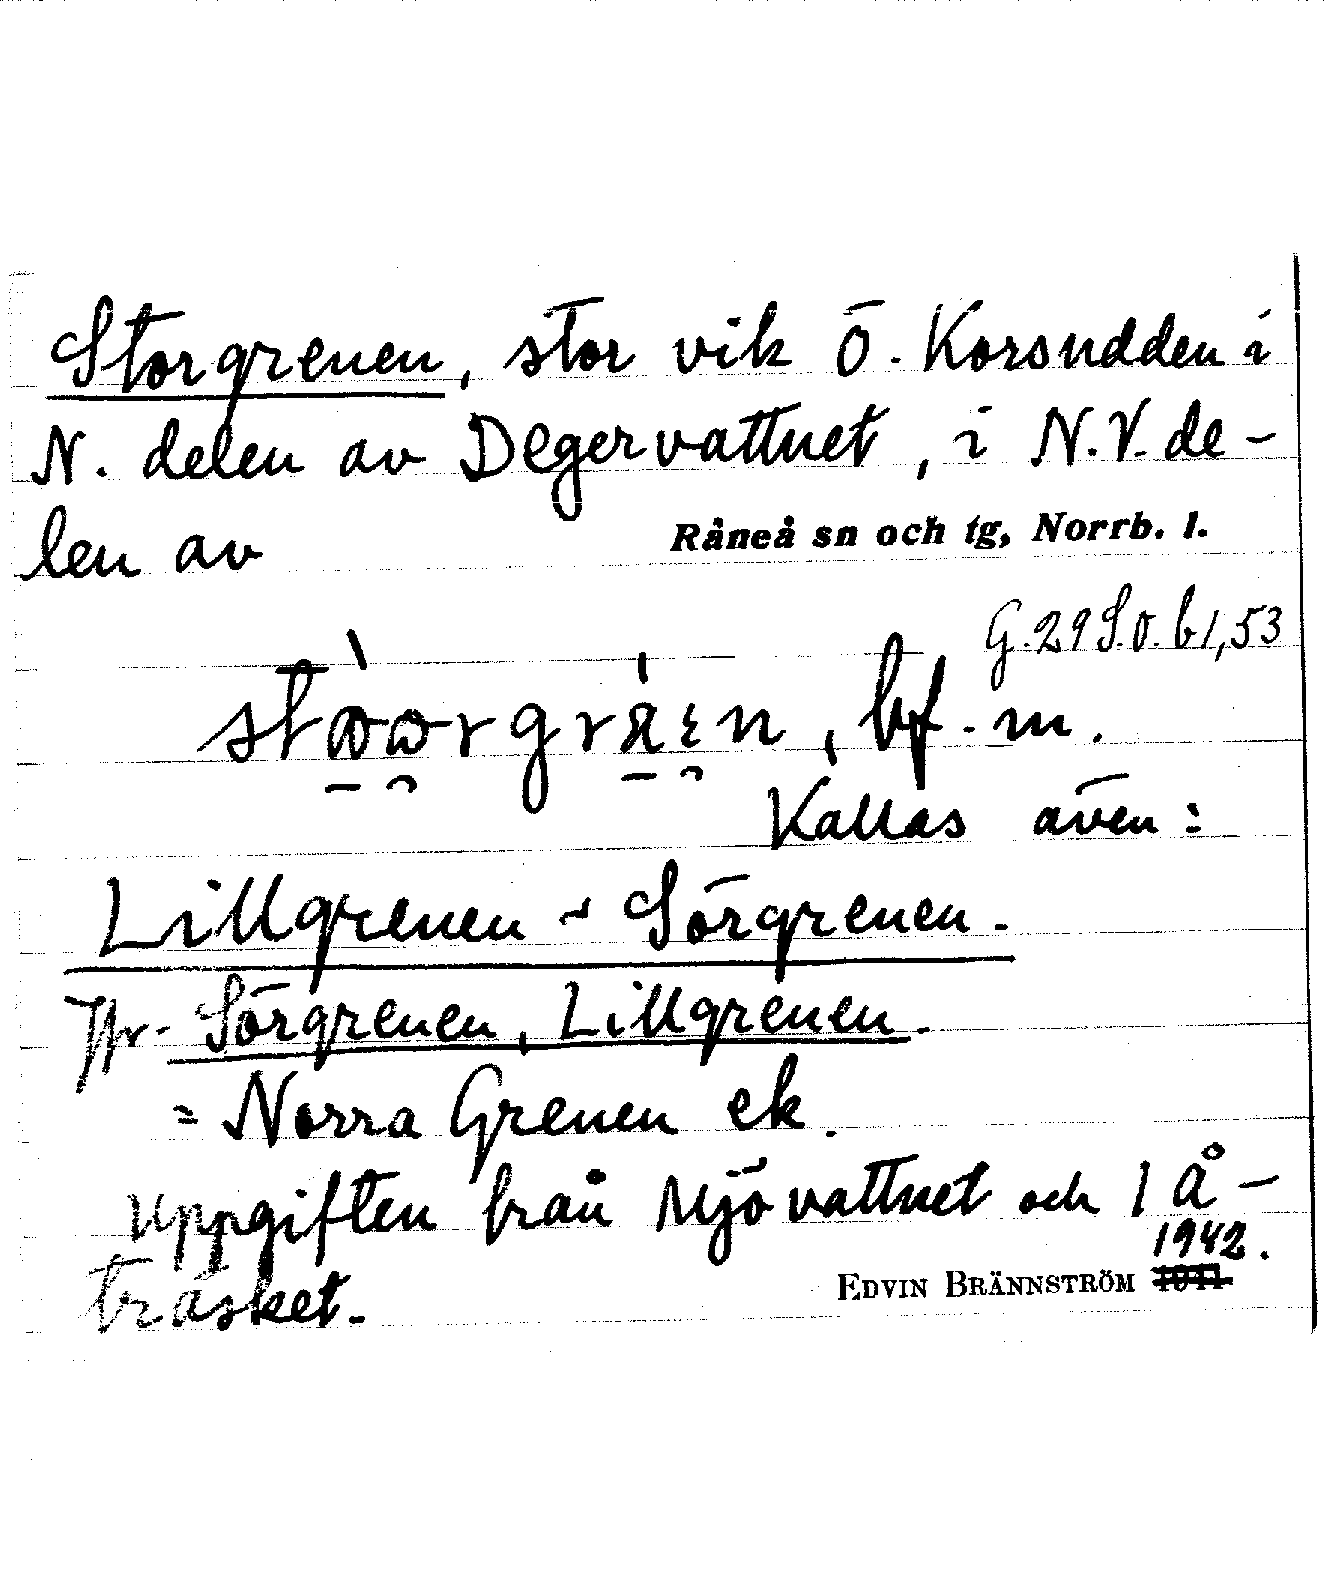 Storgrenen, stor vik Ö. Korsudden i
N. delen av Degervattnet, i N.V. de-
len av Råneå sn och tg, Norrb. l.
G.29 S.O. b1,53
bf. m.
Kallas även:
Lillgrenen ~ Sörgrenen.
Jfr. Sörgrenen, Lillgrenen.
= Norra Grenen ek.
Uppgiften från Mjövattnet och 1 Å-
träsket.
1942.
EDVIN BRÄNNSTRÖM 1941